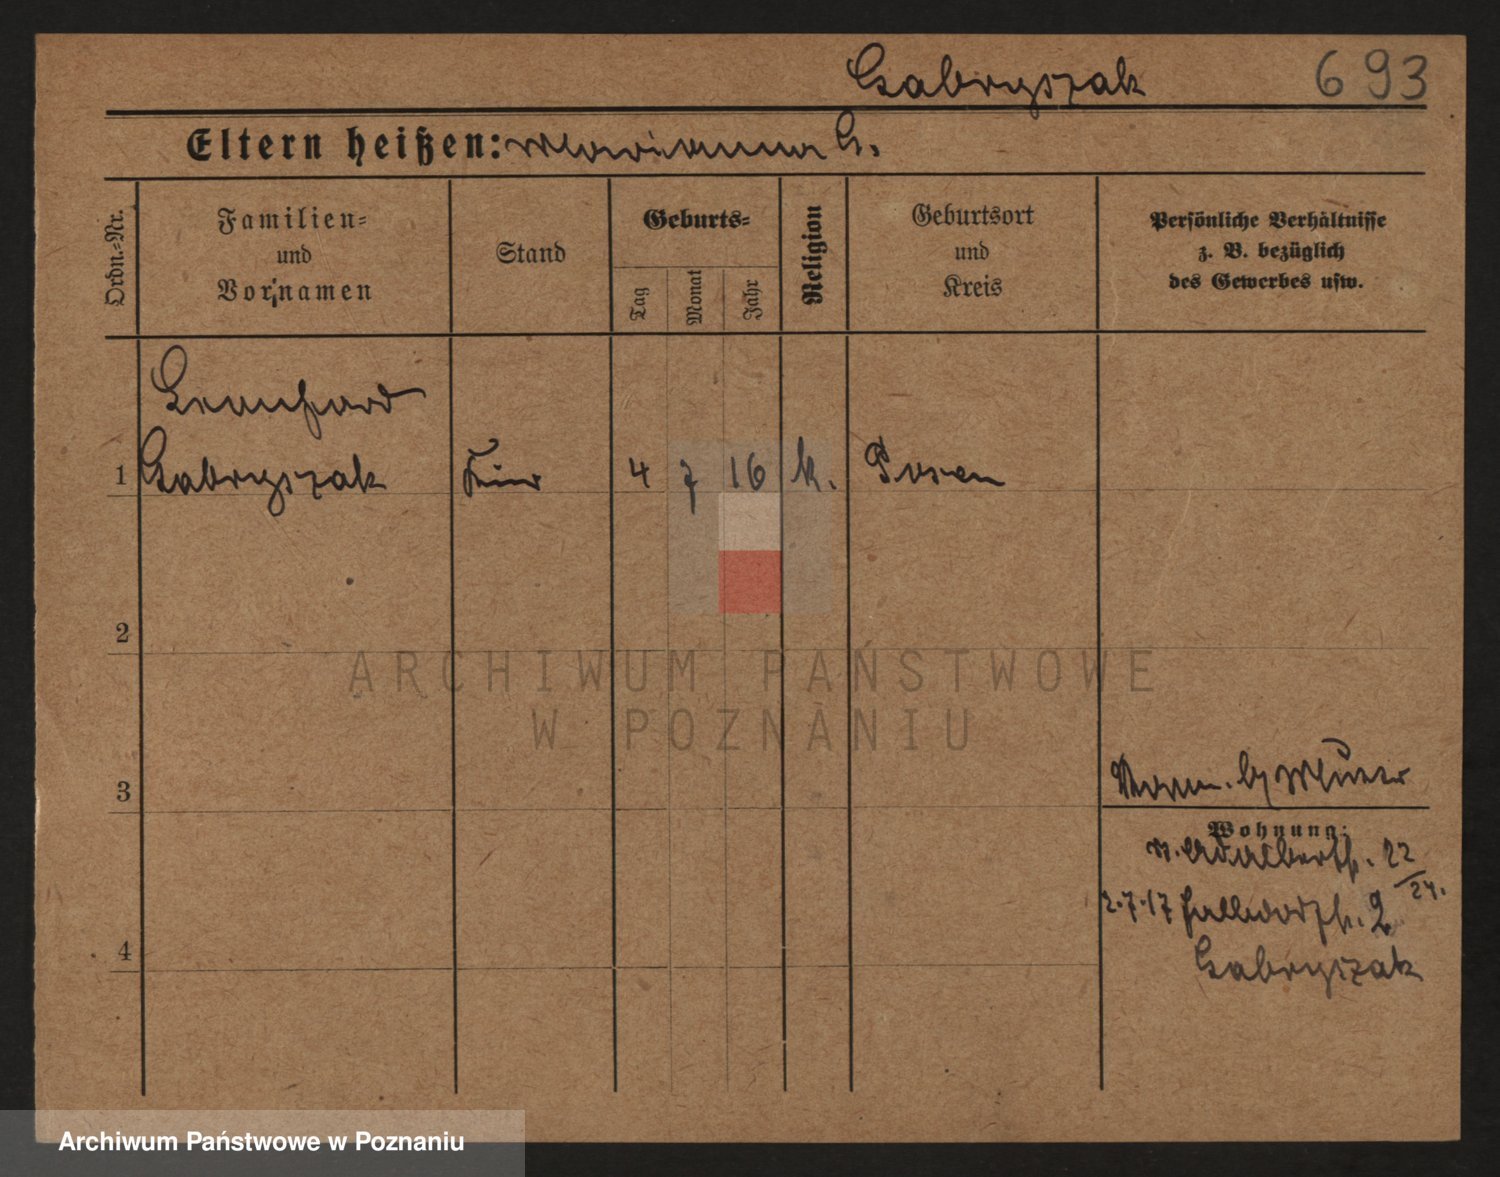 Gabryszak
693
Eltern heißen: Marianna G.
Ordn.-Nr.
Familien-
und
Vor-namen
Stand
Geburts-
Tag
Monat
Jahr
Religion
Geburtsort
und
Kreis
Persönliche Verhältnisse
z. B. bezüglich
des Gewerbes usw.
Leonhard
1 Gabryszak 4 7 16 k. Posen
2
3
4
b/ Mutter
Wohnung:
n. Adalbertstr. 22/24.
2.7.17 Halldorfstr. 2
Gabryszak
ARCHIWUM PAŃSTWOWE
W POZNANIU
Archiwum Państwowe w Poznaniu